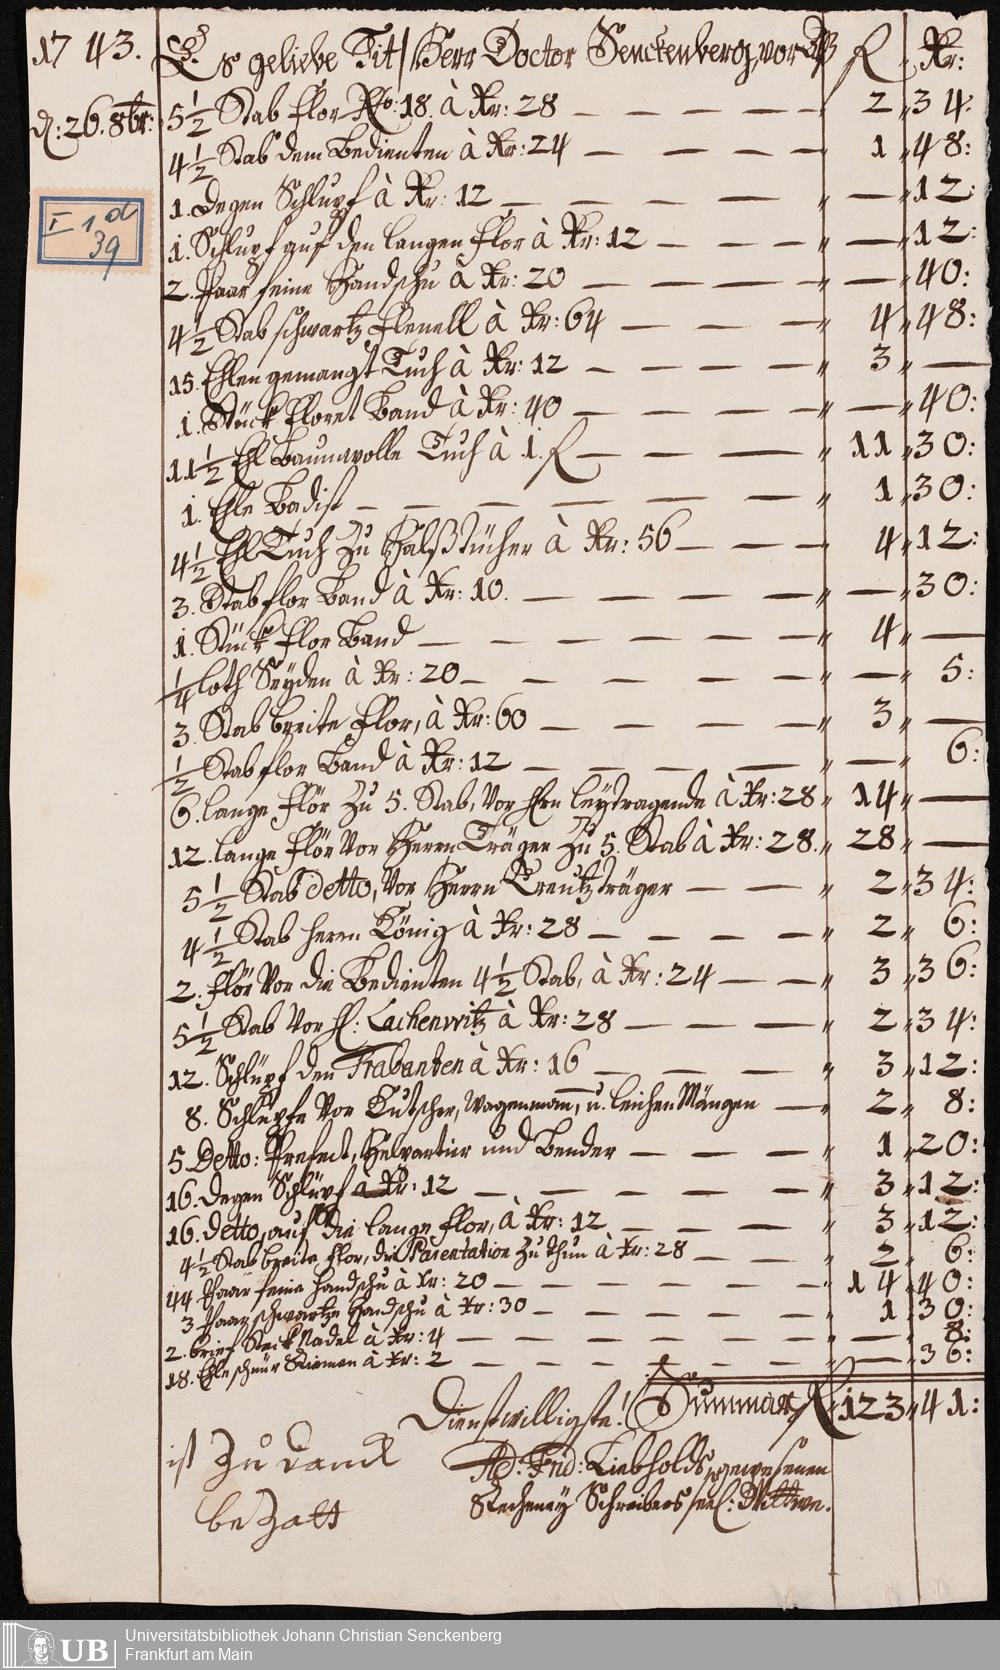 1743.
Es geliebe Tit/ Herr Doctor Senckenberg, vor R Xr:
d: 26. 8br:
5 1/2 Stab flor No: 18. à Xr: 28 — — — — — 2 „ 34:
4 1/2 Stab dem Bedienten à Xr: 24 — — — — — 1 „ 48:
1. Degen Schlupf à Xr: 12 — — — — — „ — „ 12:
1. Schlupf auf den langen flor à Xr: 12 — — — — „ — „ 12:
2. Paar feine Handschu à Xr: 20 — — — — „ — „ 40:
4 1/2 Stab schwartz flenell à Xr: 64 — — — — „ 4 „ 48:
15. Ehlen gemangt Tuch à Xr: 12 — — — — „ 3 „ —
1. Stück floret Band à Xr: 40 — — — — „ — „ 40:
11 1/2 Ehl Baumwolle Tuch à 1. R — — — — „ 11 „ 30:
1. Ehle Badist — — — — — — „ 1 „ 30:
4 1/2 Ehl Tuch zu Halßtücher à Xr: 56 — — — „ 4 „ 12:
3. Stab flor Band à Xr: 10. — — — — „ — „ 30:
1. Stück flor Band — — — — — „ 4 „ —
1/4 loth Seyden à Xr: 20 — — — — — „ — „ 5:
3. Stab breite flor, à Xr: 60 — — — — „ 3 „ —
1/2 Stab flor Band à Xr: 12 — — — — — „ — „ 6:
6. lange flör zu 5. Stab, vor Hrn leydtragende à Xr: 28 „ 14 „ —
12. lange flör vor Herrn Träger zu 5. Stab à Xr: 28. „ 28 „ —
5 1/2 Stab detto, vor Herrn Creutzträger — — — „ 2 „ 34:
4 1/2 Stab Herrn König à Xr: 28 — — — — „ 2 „ 6:
2. flör vor die Bedienten 4 1/2 Stab, à Xr: 24 — — „ 3 „ 36:
5 1/2 Stab vor H: Lachenwitz à Xr: 28 — — — — „ 2 „ 34:
12. Schlüpf den Trabanten à Xr: 16 — — — — „ 3 „ 12:
8. Schlüpfe vor Kutscher, Wagenmann, u. leichen — 2 „ 8:
5 Detto: und Bender — — — „ 1 „ 20:
16. Degen Schlüpf à Xr: 12 — — — — — „ 3 „ 12:
16. detto, auf die lange flor, à Xr: 12 — — — — 3 „ 12:
4 1/2 Stab breite flor, die zu thun à Xr: 28 — — 2 „ 6:
44 Paar feine handschu à Xr: 20 — — — — — „ 14 „ 40:
3 Paar schwartze Handschu à Xr: 30 — — — — — „ 1 „ 30:
2. brief Steck Nadel à Xr: 4 — — — — — „ — „ 8:
18. Ehle schnür Riemen à Xr: 2 — — — — — „ — „ 36:
Summa R 123 „ 41:
Dienstwilligste!
ist zu danck
bezalt
Ad: Frid: Liebholds, gewesenen
Recheney Schreibers seel: Wittwe.
I 1 d
39
UB
Universitätsbibliothek Johann Christian Senckenberg
Frankfurt am Main